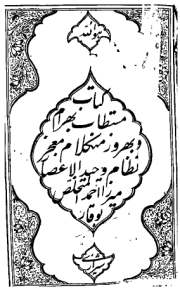 هو الله
کتاب
مستطاب بهرام
و بهروز منکلام معجز
نظام وحید الاعصر
میرزا احمد المتخلص
بوقار